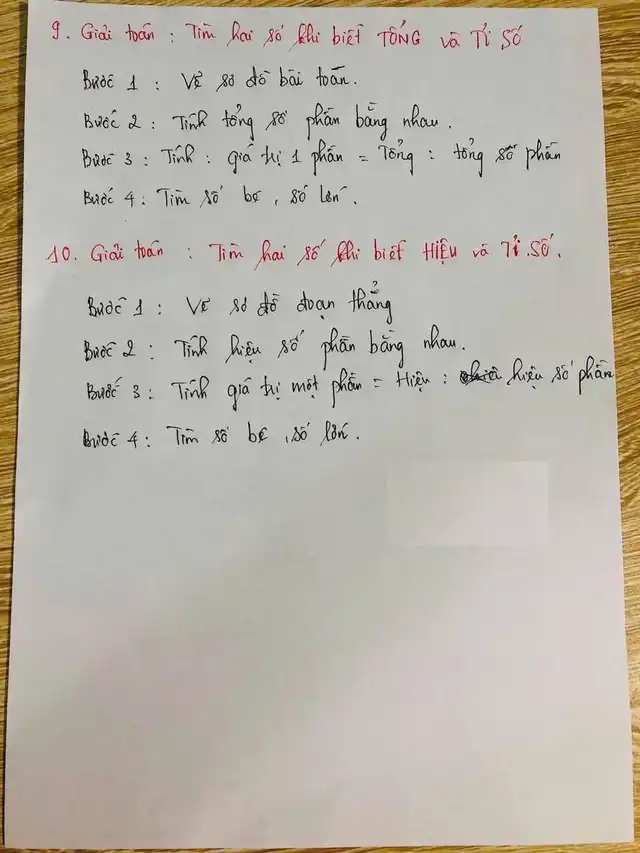 9. Giải toán : Tìm hai số khi biết TỔNG và TỈ SỐ
Bước 1 : Vẽ sơ đồ bài toán.
Bước 2 : Tính tổng số phần bằng nhau.
Bước 3 : Tính : giá trị 1 phần = Tổng : tổng số phần
Bước 4 : Tìm số bé, số lớn.
10. Giải toán : Tìm hai số khi biết HIỆU và TỈ SỐ.
Bước 1 : Vẽ sơ đồ đoạn thẳng
Bước 2 : Tính hiệu số phần bằng nhau.
Bước 3 : Tính giá trị một phần = Hiệu : hiệu số phần
Bước 4 : Tìm số bé, số lớn.